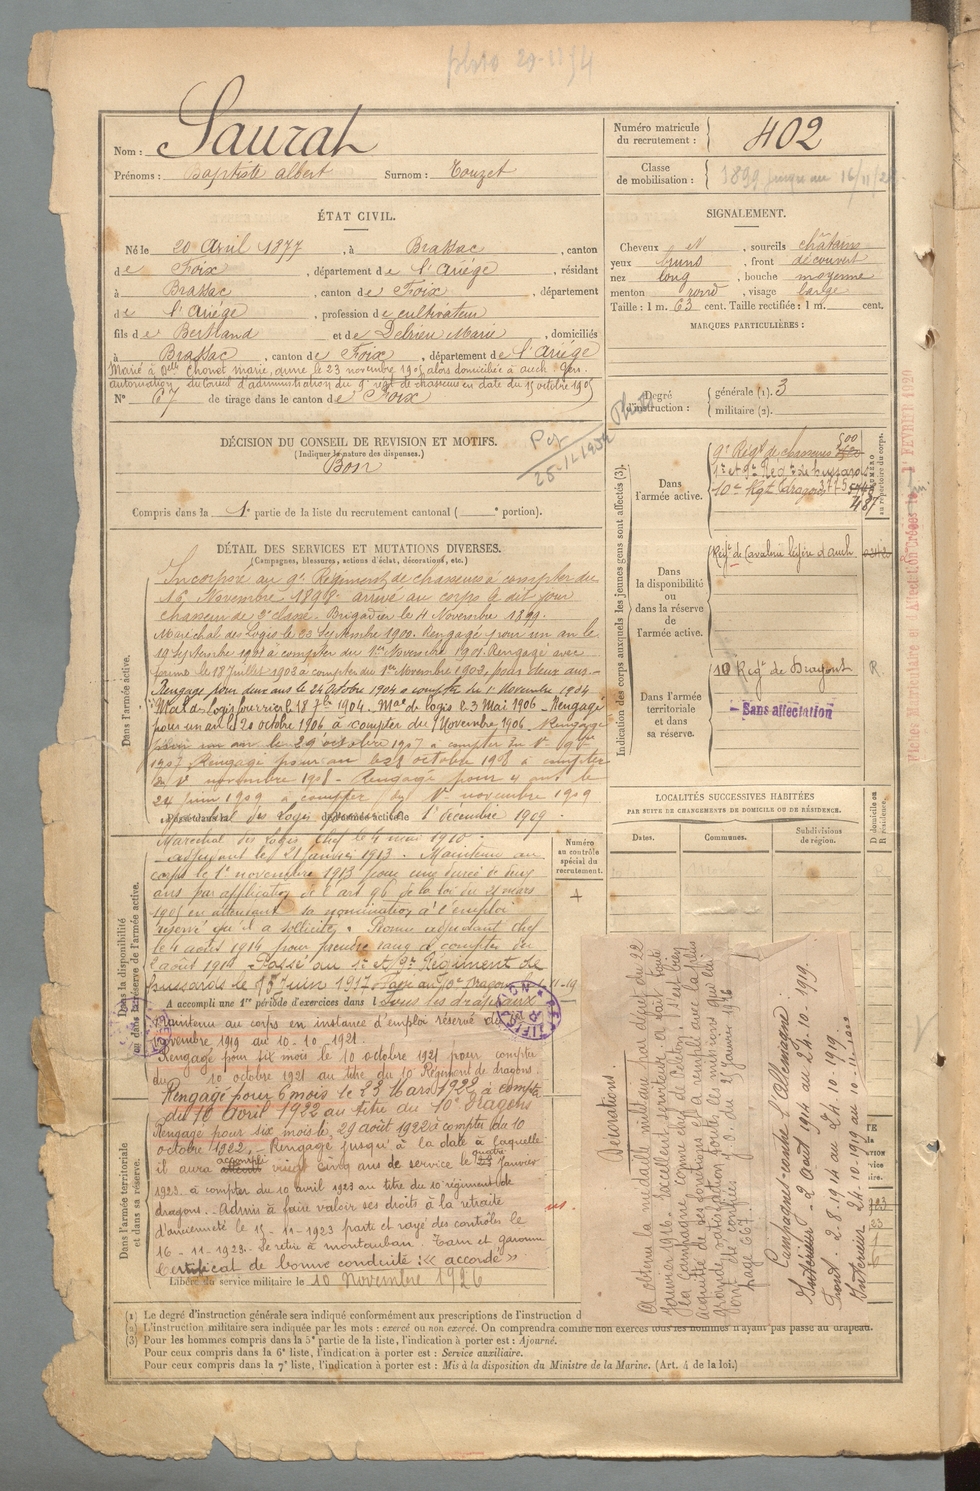 Nom : Saurat
Prénoms : Baptiste albert Surnom : Touzet
Numéro matricule du recrutement : 402
Classe de mobilisation : 1899
ÉTAT CIVIL.
Né le 20 Avril 1877, à Brassac, canton
de Foix, département de l'Ariége, résidant
à Brassac, canton de Foix, département
de l'Ariége, profession de cultivateur
fils de Bertrand et de Delrieu Marie, domiciliés
à Brassac, canton de Foix, département de l'Ariége
Marié à Delle Chonet marie, le 23 novembre 1905 alors domiciliée à auch Gers.
autorisation du Conseil d'administration du 9e régt de chasseurs en date du 15 octobre 1905
N° 67 de tirage dans le canton de Foix
SIGNALEMENT.
Cheveux et, sourcils châtains
yeux bruns, front découvert
nez long, bouche moyenne
menton rond, visage large
Taille : 1 m. 63 cent. Taille rectifiée : 1 m. cent.
MARQUES PARTICULIÈRES :
Degré d'instruction : générale (1). 3
militaire (2).
DÉCISION DU CONSEIL DE REVISION ET MOTIFS.
(Indiquer la nature des dispenses.)
Bon
Compris dans la 1e partie de la liste du recrutement cantonal ( e portion).
Indication des corps auxquels les jeunes gens sont affectés (3).
Dans l'armée active.
9e Régt de chasseurs 500
1er et 9e Régts de hussards
10e Rgt dragons 3715
487
NUMÉRO au répertoire du corps.
Dans la disponibilité ou dans la réserve de l'armée active.
Régt de Cavalerie légère d'auch
Dans l'armée territoriale et dans sa réserve.
10 Regt de Dragons R
Sans affectation
DÉTAIL DES SERVICES ET MUTATIONS DIVERSES.
(Campagnes, blessures, actions d'éclat, décorations, etc.)
Dans l'armée active.
Incorporé au 9e Régiment de chasseurs à compter du
16 Novembre 1898 arrivé au corps le dit jour
chasseur de 2e classe. Brigadier le 4 Novembre 1899.
Maréchal des Logis le 23 Septembre 1900. Rengagé pour un an le
19 Septembre 1901 à compter du 1er Novembre 1901. Rengagé avec
prime le 18 Juillet 1903 à compter du 1er Novembre 1903, pour deux ans
Rengagé pour deux ans le 24 Octobre 1904 à compter du 1 Novembre 1904
Mal des logis fourrier le 18 7bre 1904. Mal de logis le 3 Mai 1906 - Rengagé
pour un an le 20 octobre 1906 à compter du 1 Novembre 1906. Rengagé
pour un an le 29 octobre 1907 à compter du 1er 9bre
1907 Rengagé pour un an le 28 octobre 1908 à compter
du 1er novembre 1908 - Rengagé pour 4 ans le
24 Juin 1909 à compter du 1er novembre 1909
Maréchal des Logis 1 décembre 1909.
Dans la disponibilité ou dans la réserve de l'armée active.
Maréchal des Logis Chef le 4 mai 1910.
adjudant le 21 janvier 1913. Maintenu au
corps le 1er novembre 1913 pour une durée de deux
ans par application de l'art 96 de la loi du 21 mars
1905 en attendant sa nomination à l'emploi
réservé qu'il a sollicité. Promu adjudant chef
le 4 août 1914 pour prendre rang à compter du
2 août 1914 - Passé au 1er et 9e Régiment de
hussards le 15 juin 1917 - Passé au 10e Dragons
A accompli une 1re période d'exercices dans l sous les drapeaux
Maintenu au corps en instance d'emploi réservé du
novembre 1919 au 10-10-1921.
Rengagé pour six mois le 10 octobre 1921 pour compter
du 10 octobre 1921 au titre du 10 Régiment de dragons.
Rengagé pour 6 mois le 23 Mars 1922 à compter
du 10 avril 1922 au titre du 10e Dragons
Dans l'armée territoriale et dans sa réserve.
Rengagé pour six mois le 29 août 1922 à compter du 10
octobre 1922. Rengagé jusqu'à la date à laquelle
il aura accompli vingt cinq ans de service le quatre Janvier
1923 à compter du 10 avril 1923 au titre du 10 régiment de
dragons. - Admis à faire valoir ses droits à la retraite
d'ancienneté le 15-11-1923 parti et rayé des contrôles le
16-11-1923. Se retire à montauban. Tarn et garonne
Certificat de bonne conduite : « accordé »
Libéré du service militaire le 10 Novembre 1926
Numéro au contrôle spécial du recrutement.
LOCALITÉS SUCCESSIVES HABITÉES
PAR SUITE DE CHANGEMENTS DE DOMICILE OU DE RÉSIDENCE.
Dates. Communes. Subdivisions de région. D domicile ou R résidence.
Décorations.
A obtenu la médaille militaire par décret du 22
janvier 1916. Excellent serviteur, a fait toute
la campagne comme chef de peloton. S'est bien
acquitté de ses fonctions et a rempli avec la plus
grande satisfaction toutes les missions qui lui
ont été confiées. J.O. du 27 Janvier 1916
page 667.
Campagnes contre l'Allemagne :
Intérieur - 2 août 1914 au 24.10.1919.
Front. 2.8.1914 au 24.10.1919.
Intérieur 24.10.1919 au 10-11-
(1) Le degré d'instruction générale sera indiqué conformément aux prescriptions de l'instruction d
(2) L'instruction militaire sera indiquée par les mots : exercé ou non exercé. On comprendra comme non exercés tous les hommes n'ayant pas passé au drapeau.
(3) Pour les hommes compris dans la 5e partie de la liste, l'indication à porter est : Ajourné.
Pour ceux compris dans la 6e liste, l'indication à porter est : Service auxiliaire.
Pour ceux compris dans la 7e liste, l'indication à porter est : Mis à la disposition du Ministre de la Marine. (Art. 4 de la loi.)